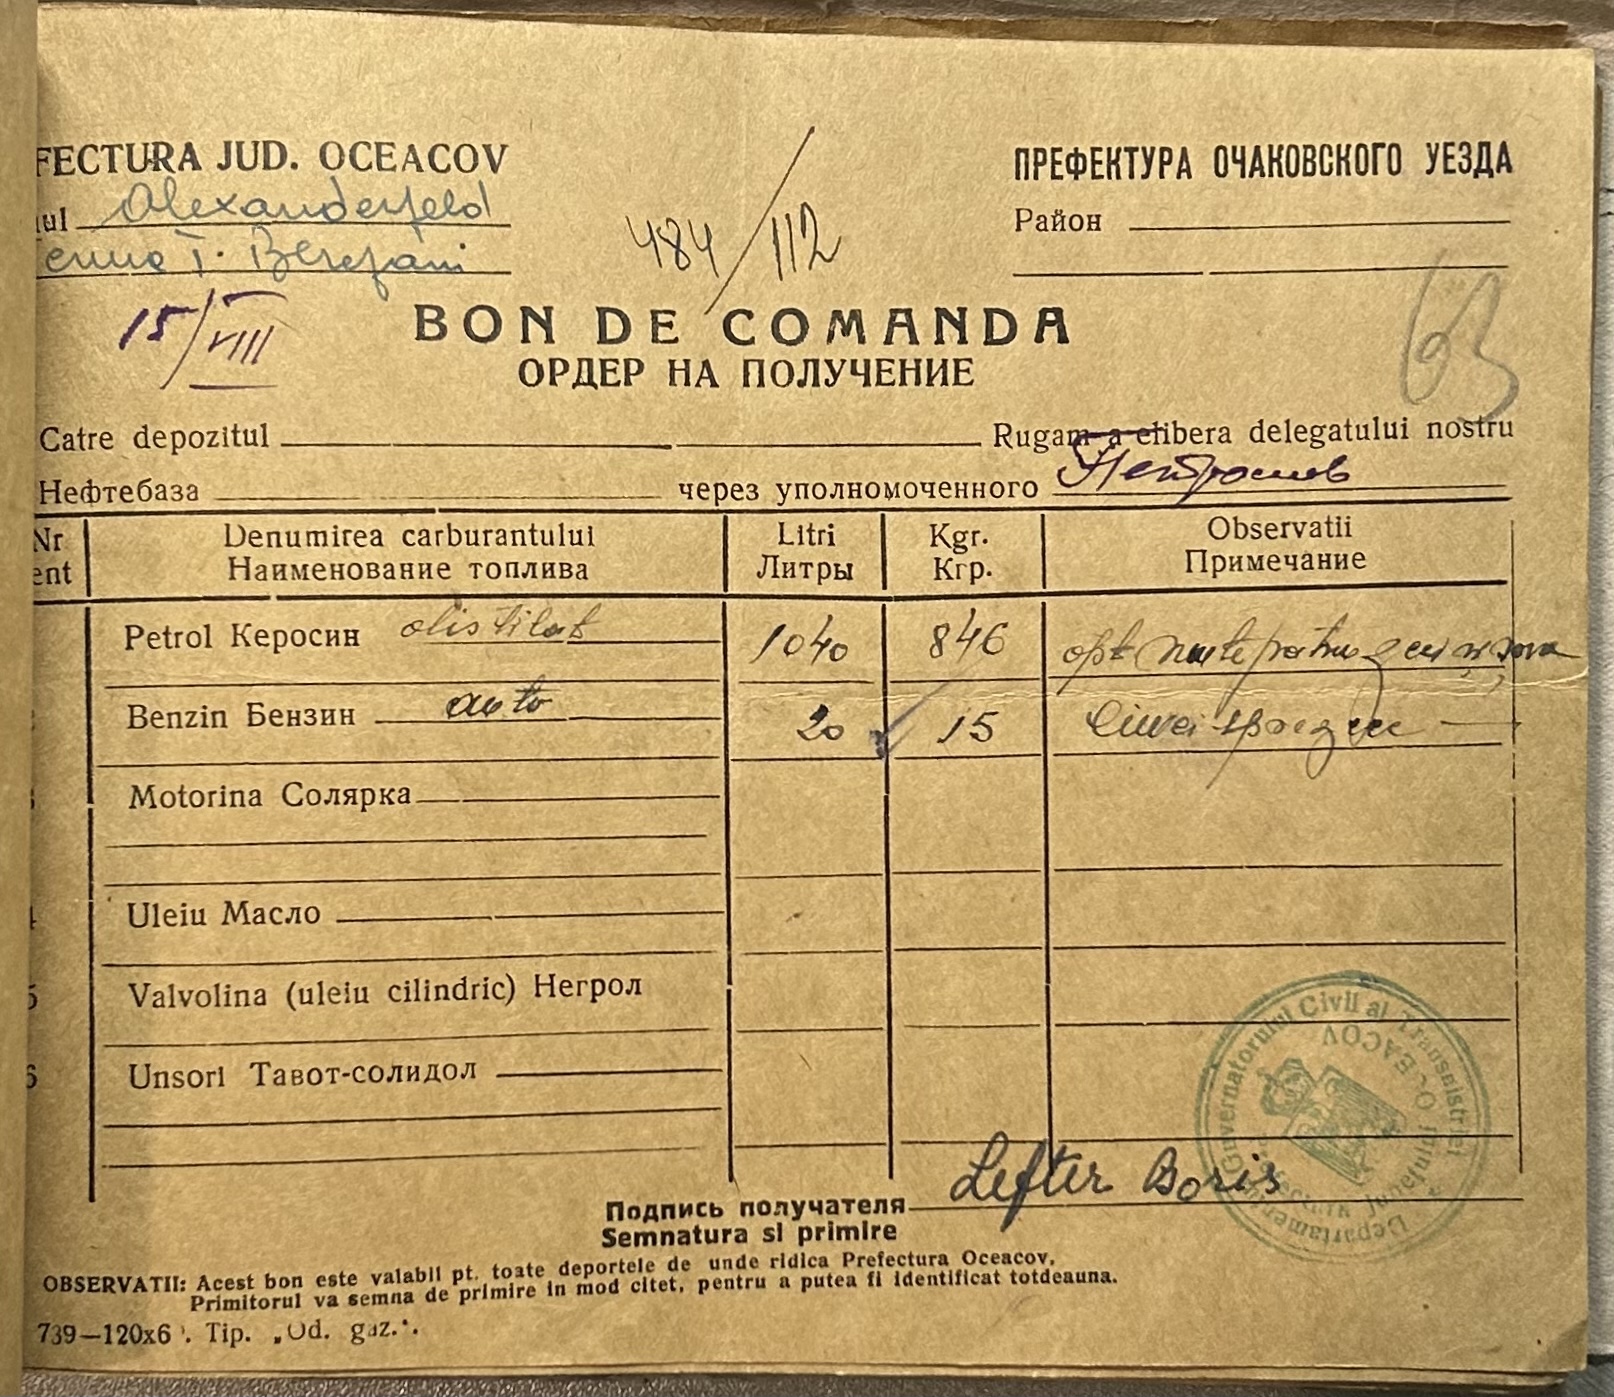 FECTURA JUD. OCEACOV
ПРЕФЕКТУРА ОЧАКОВСКОГО УЕЗДА
ul Alexanderfeld
Район
T. Berezani
484/112
15/VIII
63
BON DE COMANDA
ОРДЕР НА ПОЛУЧЕНИЕ
Catre depozitul Rugam a elibera delegatului nostru
Нефтебаза через уполномоченного
Nr Denumirea carburantului Litri Kgr. Observatii
ent Наименование топлива Литры Кгр. Примечание
Petrol Керосин distilat 1040 846 opt sute patru zeci si sase
Benzin Бензин auto 20 15 Cinci spre zece
Motorina Солярка
Uleiu Масло
5 Valvolina (uleiu cilindric) Негрол
6 Unsori Тавот-солидол
Guvernatorului Civil al Transnistriei
Prefectura Judeţului OCEACOV
Lefter Boris
Подпись получателя
Semnatura si primire
OBSERVATII: Acest bon este valabil pt. toate deportele de unde ridica Prefectura Oceacov,
Primitorul va semna de primire in mod citet, pentru a putea fi identificat totdeauna.
739—120x6 . Tip. „Od. gaz.".